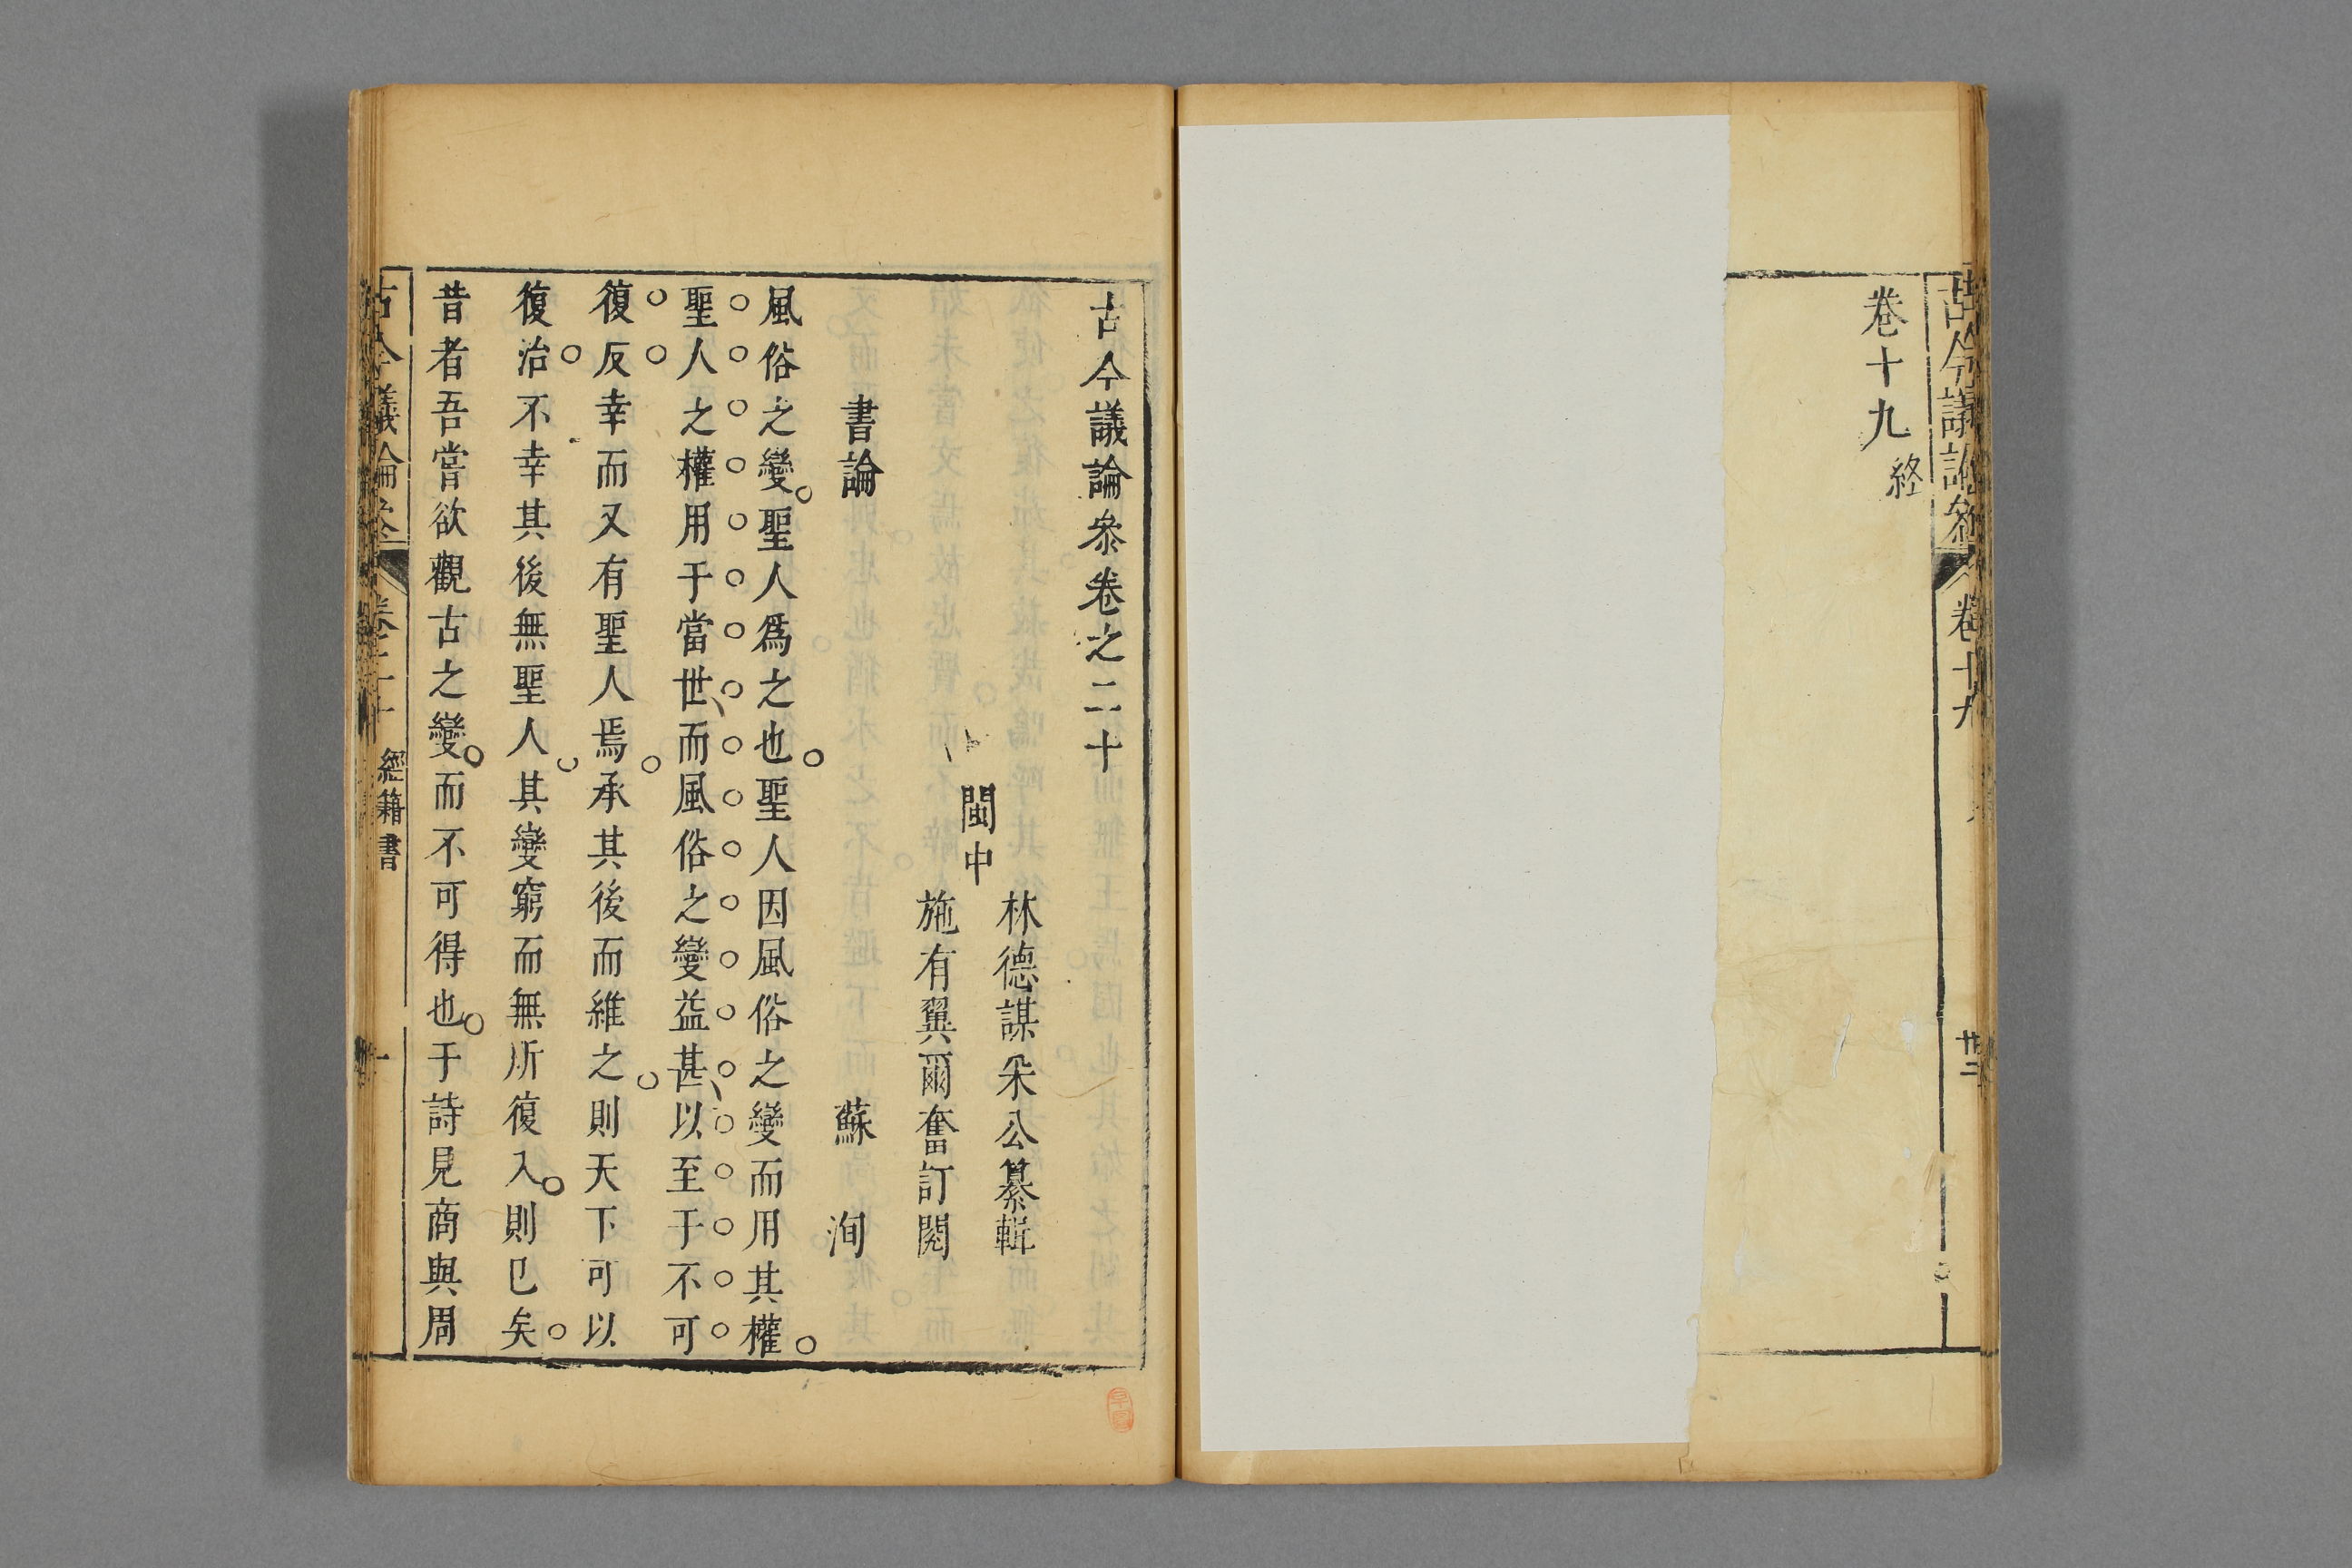 古今議論參 卷十九 廿二
卷十九終
古今議論叅卷之二十
林德謀采公纂輯
閩中
施有翼爾奮訂閱
書論 蘇洵
風俗之變聖人爲之也聖人因風俗之變而用其權
聖人之權用于當世而風俗之變益甚以至于不可
復反幸而又有聖人焉承其後而維之則天下可以
復治不幸其後無聖人其變窮而無所復入則已矣
昔者吾嘗欲觀古之變而不可得也于詩見商與周
古今議論參 卷二十 經籍書 一